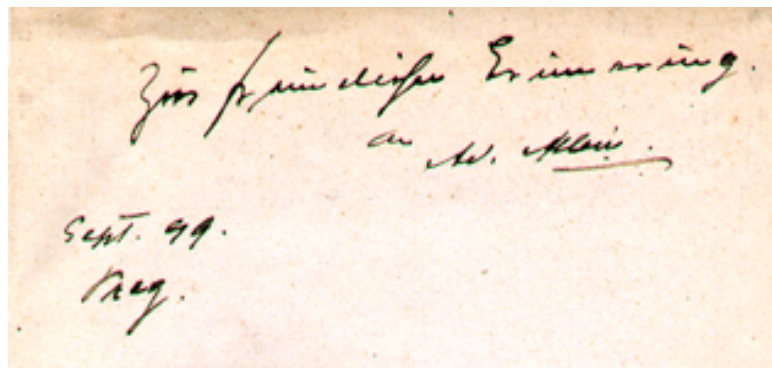 Zur freundlichen Erinnerung.
an Ad. Klein.
Sept. 99.
Prag.